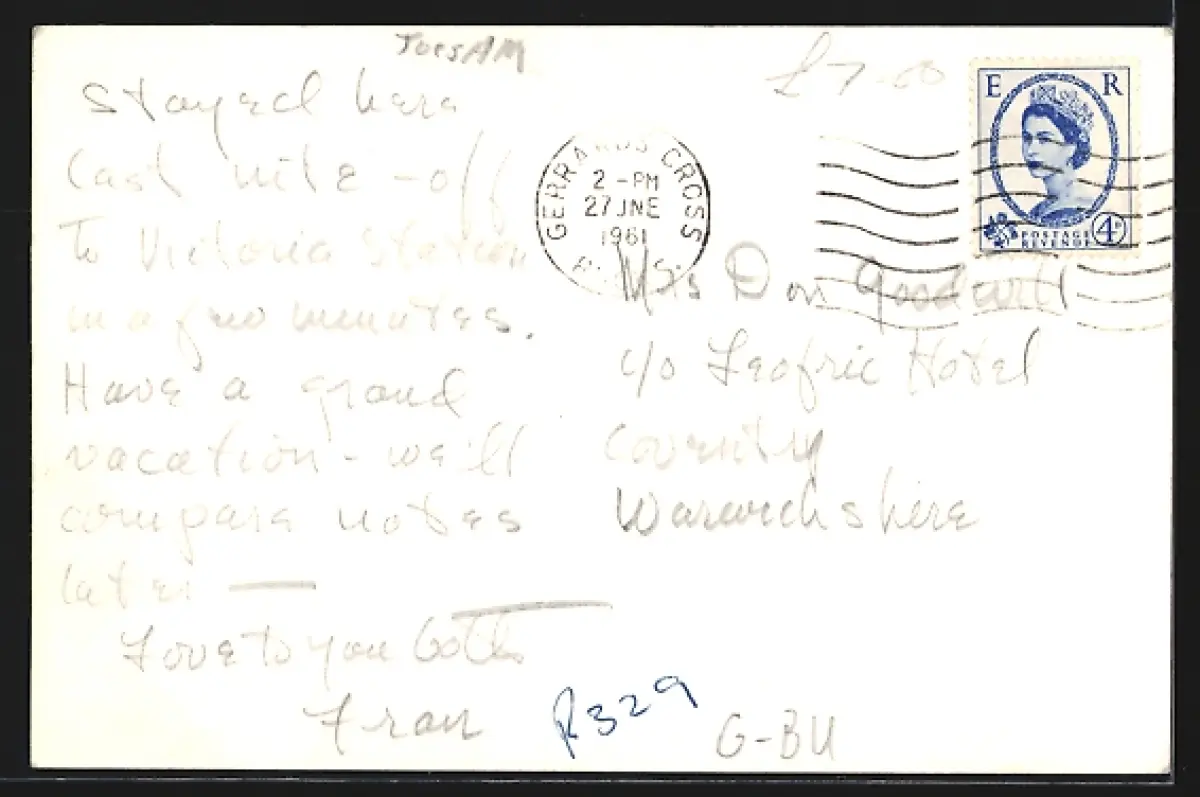 Tues AM
Stayed here
last nite - off
to Victoria Station
in a few minutes.
Have a grand
vacation - we'll
compare notes
later —
Love to you both
Fran
£7-00
E R
POSTAGE
REVENUE
4D
GERRARDS CROSS
2 - PM
27 JNE
1961
BUCKS.
Mrs Don Goodwill
c/o Leofric Hotel
Coventry
Warwickshire
R329
G-BU